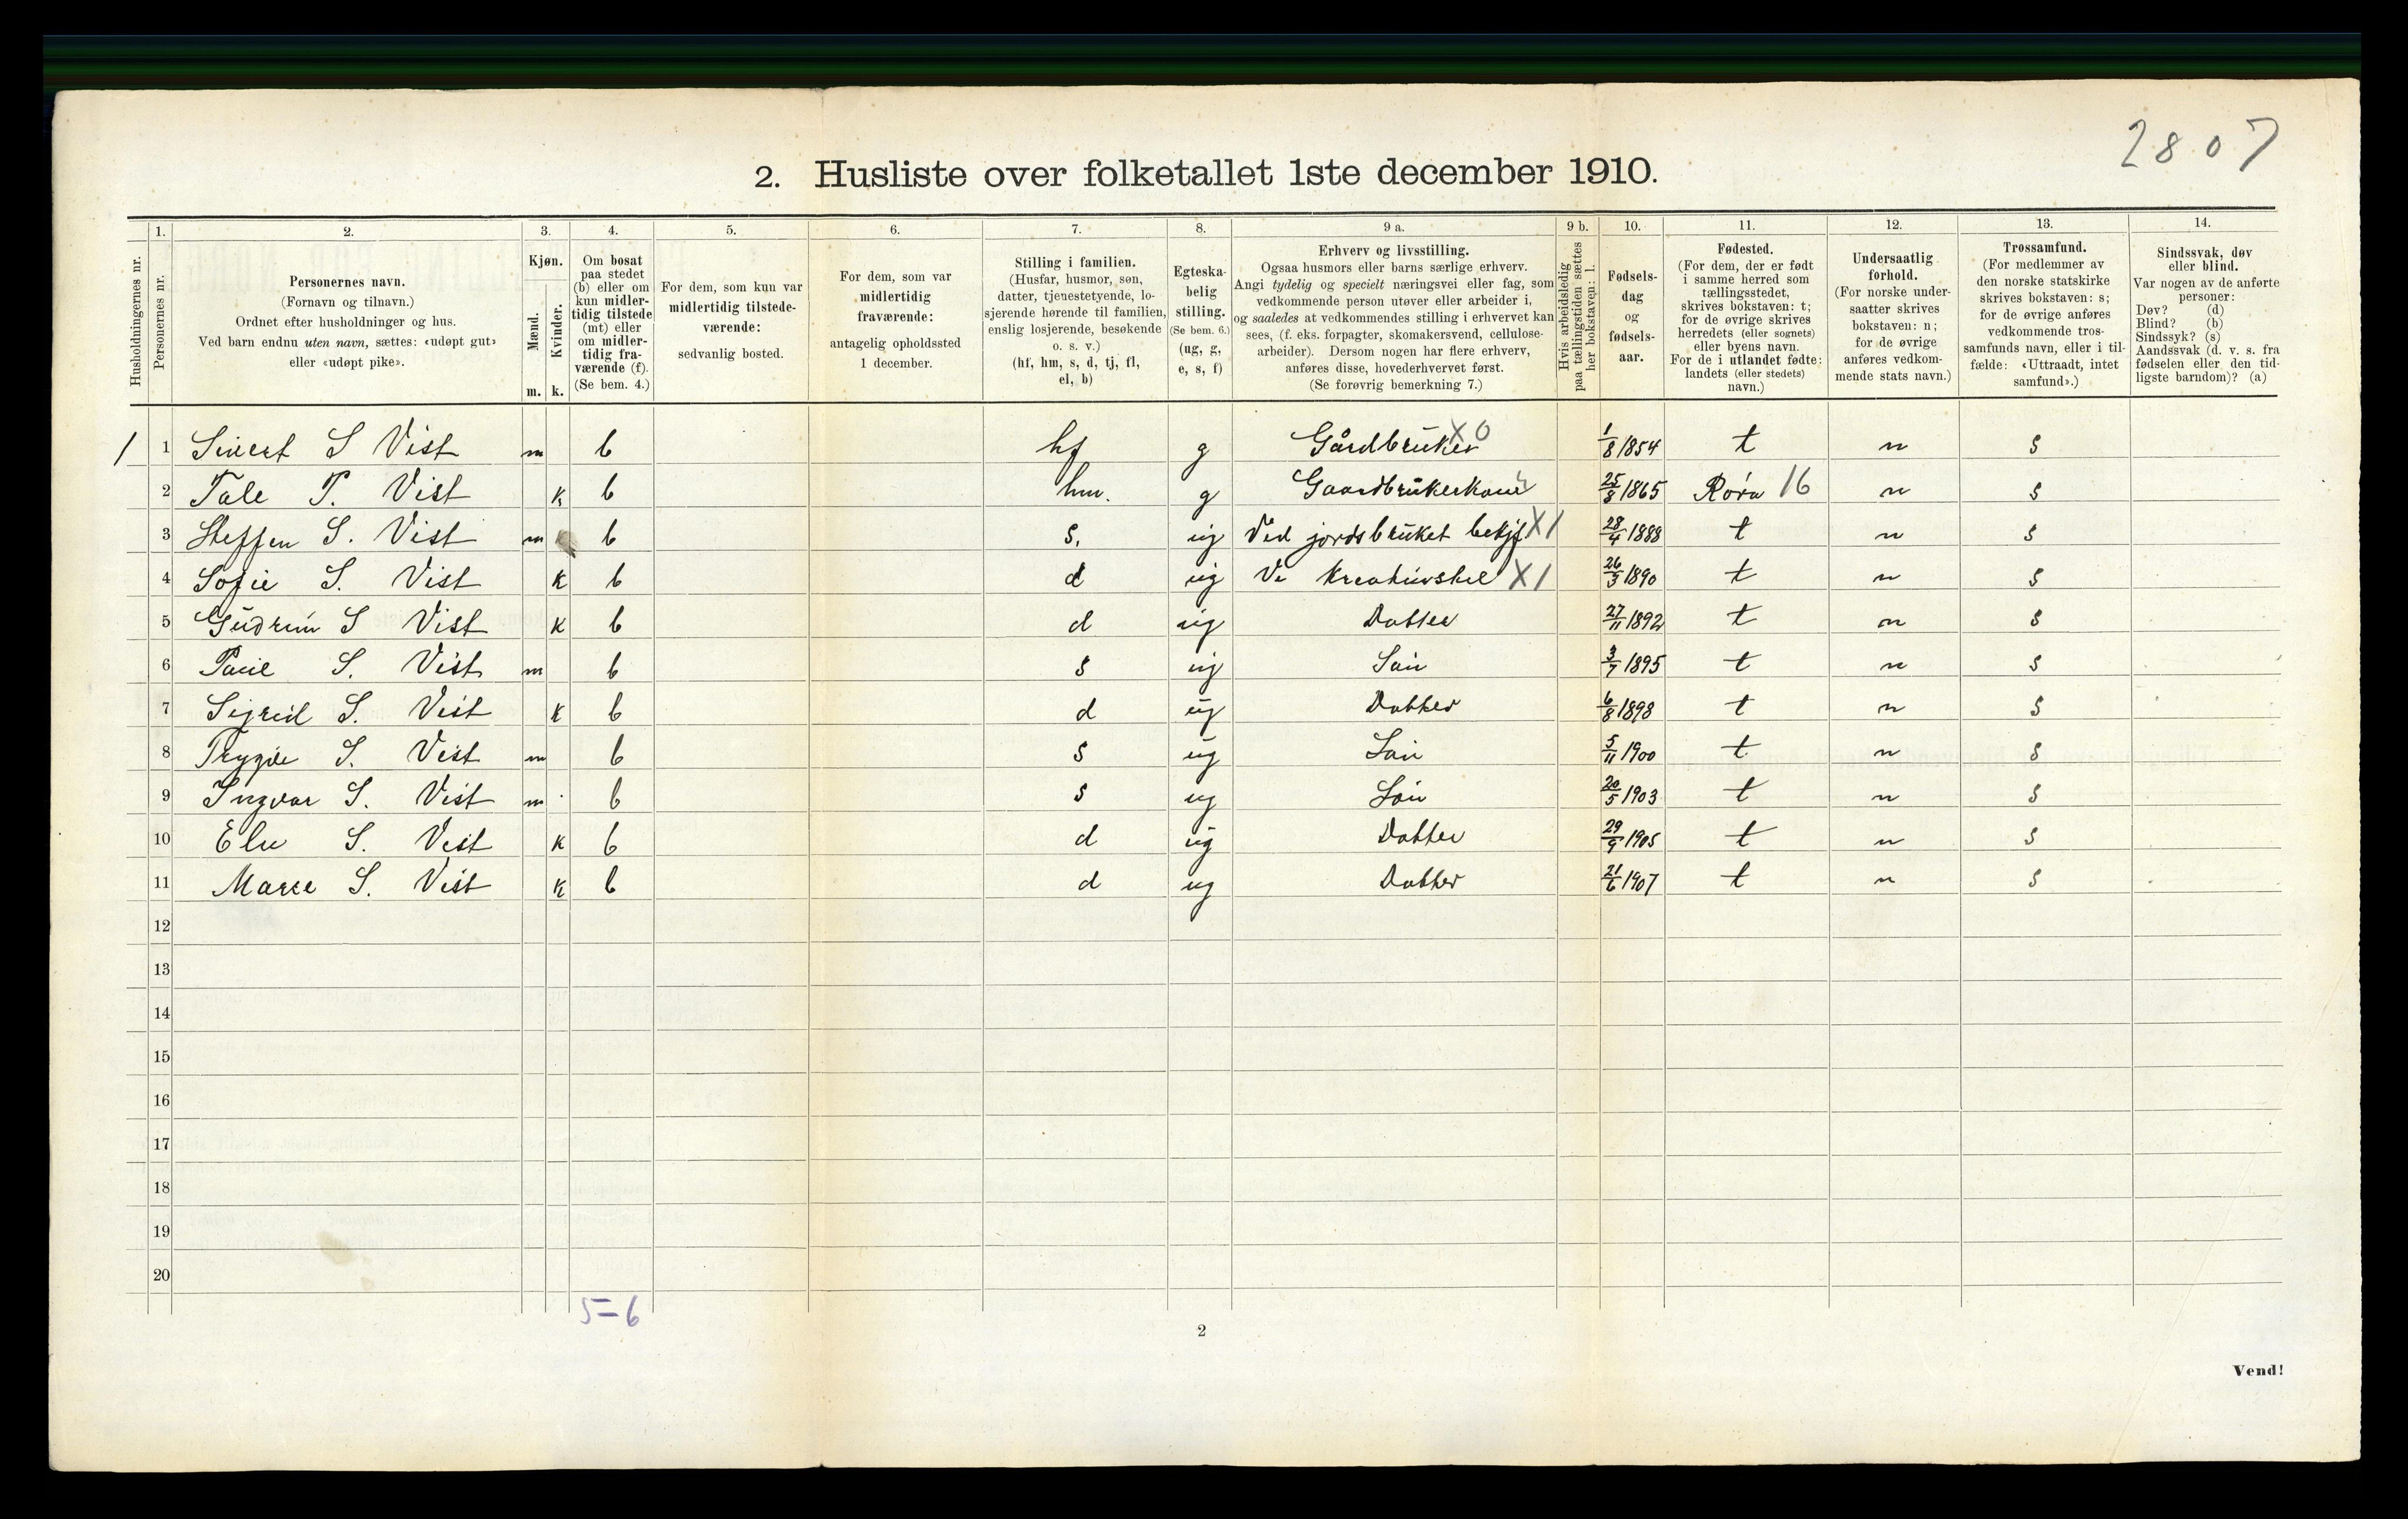 2807
2. Husliste over folketallet 1ste december 1910.
Husholdningernes nr.
1. Personernes nr.
2. Personernes navn. (Fornavn og tilnavn.) Ordnet efter husholdninger og hus. Ved barn endnu uten navn, sættes: «udøpt gut» eller «udøpt pike».
3. Kjøn. Mænd. m. Kvinder. k.
4. Om bosat paa stedet (b) eller om kun midlertidig tilstede (mt) eller om midlertidig fraværende (f). (Se bem. 4.)
5. For dem, som kun var midlertidig tilstedeværende: sedvanlig bosted.
6. For dem, som var midlertidig fraværende: antagelig opholdssted 1 december.
7. Stilling i familien. (Husfar, husmor, søn, datter, tjenestetyende, losjerende hørende til familien, enslig losjerende, besøkende o. s. v.) (hf, hm, s, d, tj, fl, el, b)
8. Egteskabelig stilling. (Se bem. 6.) (ug, g, e, s, f)
9 a. Erhverv og livsstilling. Ogsaa husmors eller barns særlige erhverv. Angi tydelig og specielt næringsvei eller fag, som vedkommende person utøver eller arbeider i, og saaledes at vedkommendes stilling i erhvervet kan sees, (f. eks. forpagter, skomakersvend, cellulosearbeider). Dersom nogen har flere erhverv, anføres disse, hovederhvervet først. (Se forøvrig bemerkning 7.)
9 b. Hvis arbeidsledig paa tællingstiden sættes her bokstaven: l.
10. Fødselsdag og fødselsaar.
11. Fødested. (For dem, der er født i samme herred som tællingsstedet, skrives bokstaven: t; for de øvrige skrives herredets (eller sognets) eller byens navn. For de i utlandet fødte: landets (eller stedets) navn.)
12. Undersaatlig forhold. (For norske undersaatter skrives bokstaven: n; for de øvrige anføres vedkommende stats navn.)
13. Trossamfund. (For medlemmer av den norske statskirke skrives bokstaven: s; for de øvrige anføres vedkommende trossamfunds navn, eller i tilfælde: «Uttraadt, intet samfund».)
14. Sindssvak, døv eller blind. Var nogen av de anførte personer: Døv? (d) Blind? (b) Sindssyk? (s) Aandssvak (d. v. s. fra fødselen eller den tidligste barndom)? (a)
1 1 Sivert S Vist m b hf g Gårdbruker X0 1/8 1854 t n s
2 Tale P. Vist k b hm. g Gaardbrukerkone 25/8 1865 Røra 16 n s
3 Steffen S. Vist m b s. ug Ved jordsbruket X1 28/4 1888 t n s
4 Sofie S. Vist k b d ug X1 26/3 1890 t n s
5 Gudrun S Vist k b d ug Datter 27/11 1892 t n s
6 Paul S. Vist m b s ug Søn 3/7 1895 t n s
7 Sigrid S. Vist k b d ug Datter 6/8 1898 t n s
8 Trygve S. Vist m b s ug Søn 5/11 1900 t n s
9 Ingvar S. Vist m b s ug Søn 20/5 1903 t n s
10 S. Vist k b d ug Datter 29/9 1905 t n s
11 Marie S. Vist k b d ug Datter 21/6 1907 t n s
12
13
14
15
16
17
18
19
20
5=6
2
Vend!